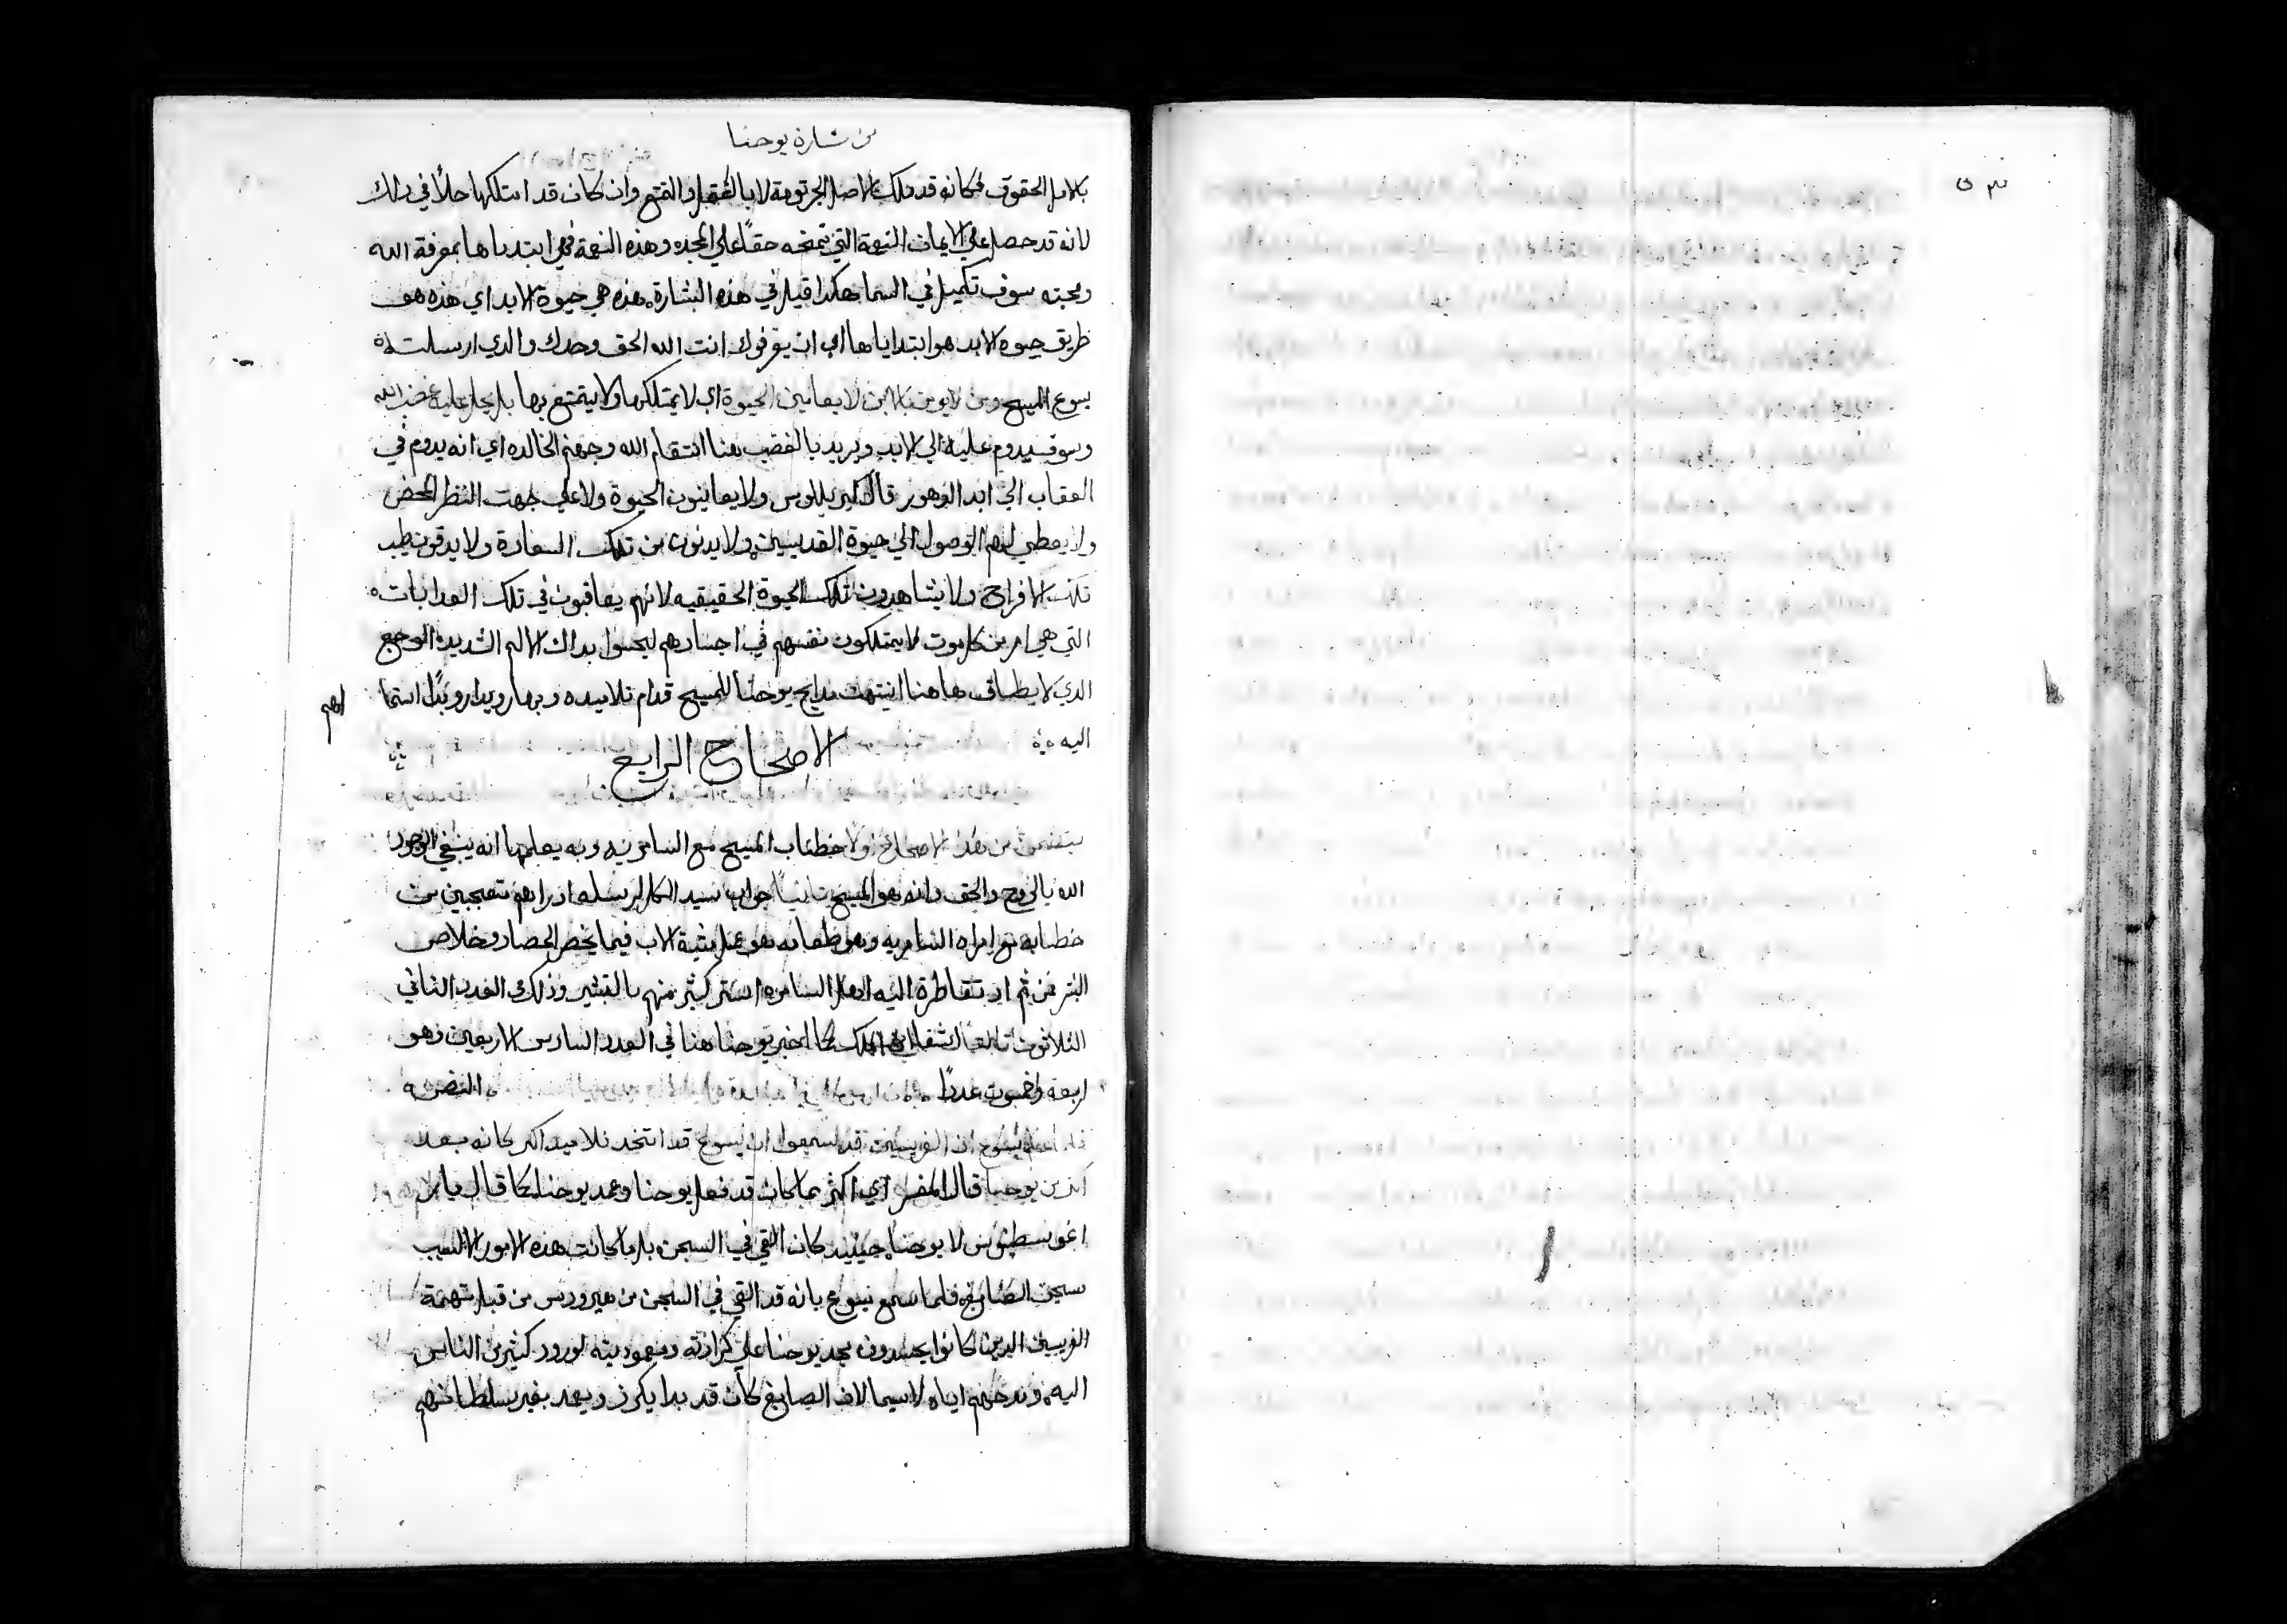 من بشارة يوحنا
بكامل الحقوق فكانه قد ملك الاصل الجرتومة لا بالفعل والتمتع وان كان قد امتلكها حلاً في ذلك
لانه قد حصل علي الايمان النعمة التي تمنحه حقاً علي المجد وهذه النعمة فهي ابتداها بمعرفة الله
ومحبته سوف تكمل في السما هكدا قيل في هذه البشارة هذه هي حيوة الابد اي هذه هي
طريق حيوه الابد هو ابتداياها اي ان يعرفوك انت الله الحق وحدك والدي ارسلته
يسوع المسيح ومن لا يومن بالابن لا يعاين الحيوة اي لا يمتلكها ولا يتمتع بها بل يحل عليه غضب الله
وسوف يدوم عليه الي الابد ويريد بالغضب هنا انتقام الله وجهنم الخالده اي انه يدوم في
العقاب الي ابد الدهور قال كيريللوس ولا يعاينون الحيوة ولا علي جهت النظر المحض
ولا يعطي لهم الوصول الي حيوة القديسين ولا يدنون من تلك السعادة ولا يدقون طيب
تلك الافراح ولا يشاهدون تلك الحيوة الحقيقيه لانهم يعاقبون في تلك العدابات
التي هي امر من كل موت لا يمتلكون نفسهم في اجسادهم ليحسوا بداك الالم الشديد الوجع
الدي لا يطاق هاهنا انتهت مدايح يوحنا للمسيح قدام تلاميده وبها رويدا رويداً استما
لهم
اليه
الاصحاح الرابع
يتضمن من هذا الاصحاح اولاً خطاب المسيح مع السامريه وبه يعلمها انه ينبغي السجود
الله بالروح والحق وانه هو المسيح ثانياً جواب سيد الكل لرسله اد راهم متعجبين من
خطابه مع امراه السامريه وهو طعامه هو عمل مشية الاب فيما يخص الحصاد وخلاص
البشر فمن ثم اد تقاطرة اليه اهل السامره استر كثير منهم بالتبشير وذلك العدد الثاني
الثلاثون ثالثاً شفا ابن الملك كما يخبر يوحنا هنا في العدد السادس الاربعين وهو
اربعة وخمسون عدداً النص
فلما علم يسوع ان الفريسين قد سمعوا ان يسوع قد اتخد تلاميد اكثر كانه يعمد
اكثر من يوحنا قال المفسر اي اكثر مما كان قد فعل يوحنا وعمد يوحنا كما قال ماري
اغوسطينوس لا يوحنا حينيد كان القي في السجن بل ما كانت هذه الامور الا لسبب
سجن الصابغ فلما سمع يسوع بانه قد القي في السجن من هيرودس من قبل تهمة
الفريسين الدين كانوا يحسدون مجد يوحنا علي كرازته ومعموديته لورود كثير من الناس
اليه ومدحهم اياه لاسيما لان الصابغ كان قد بدا يكرز ويعمد بغير سلطانهم